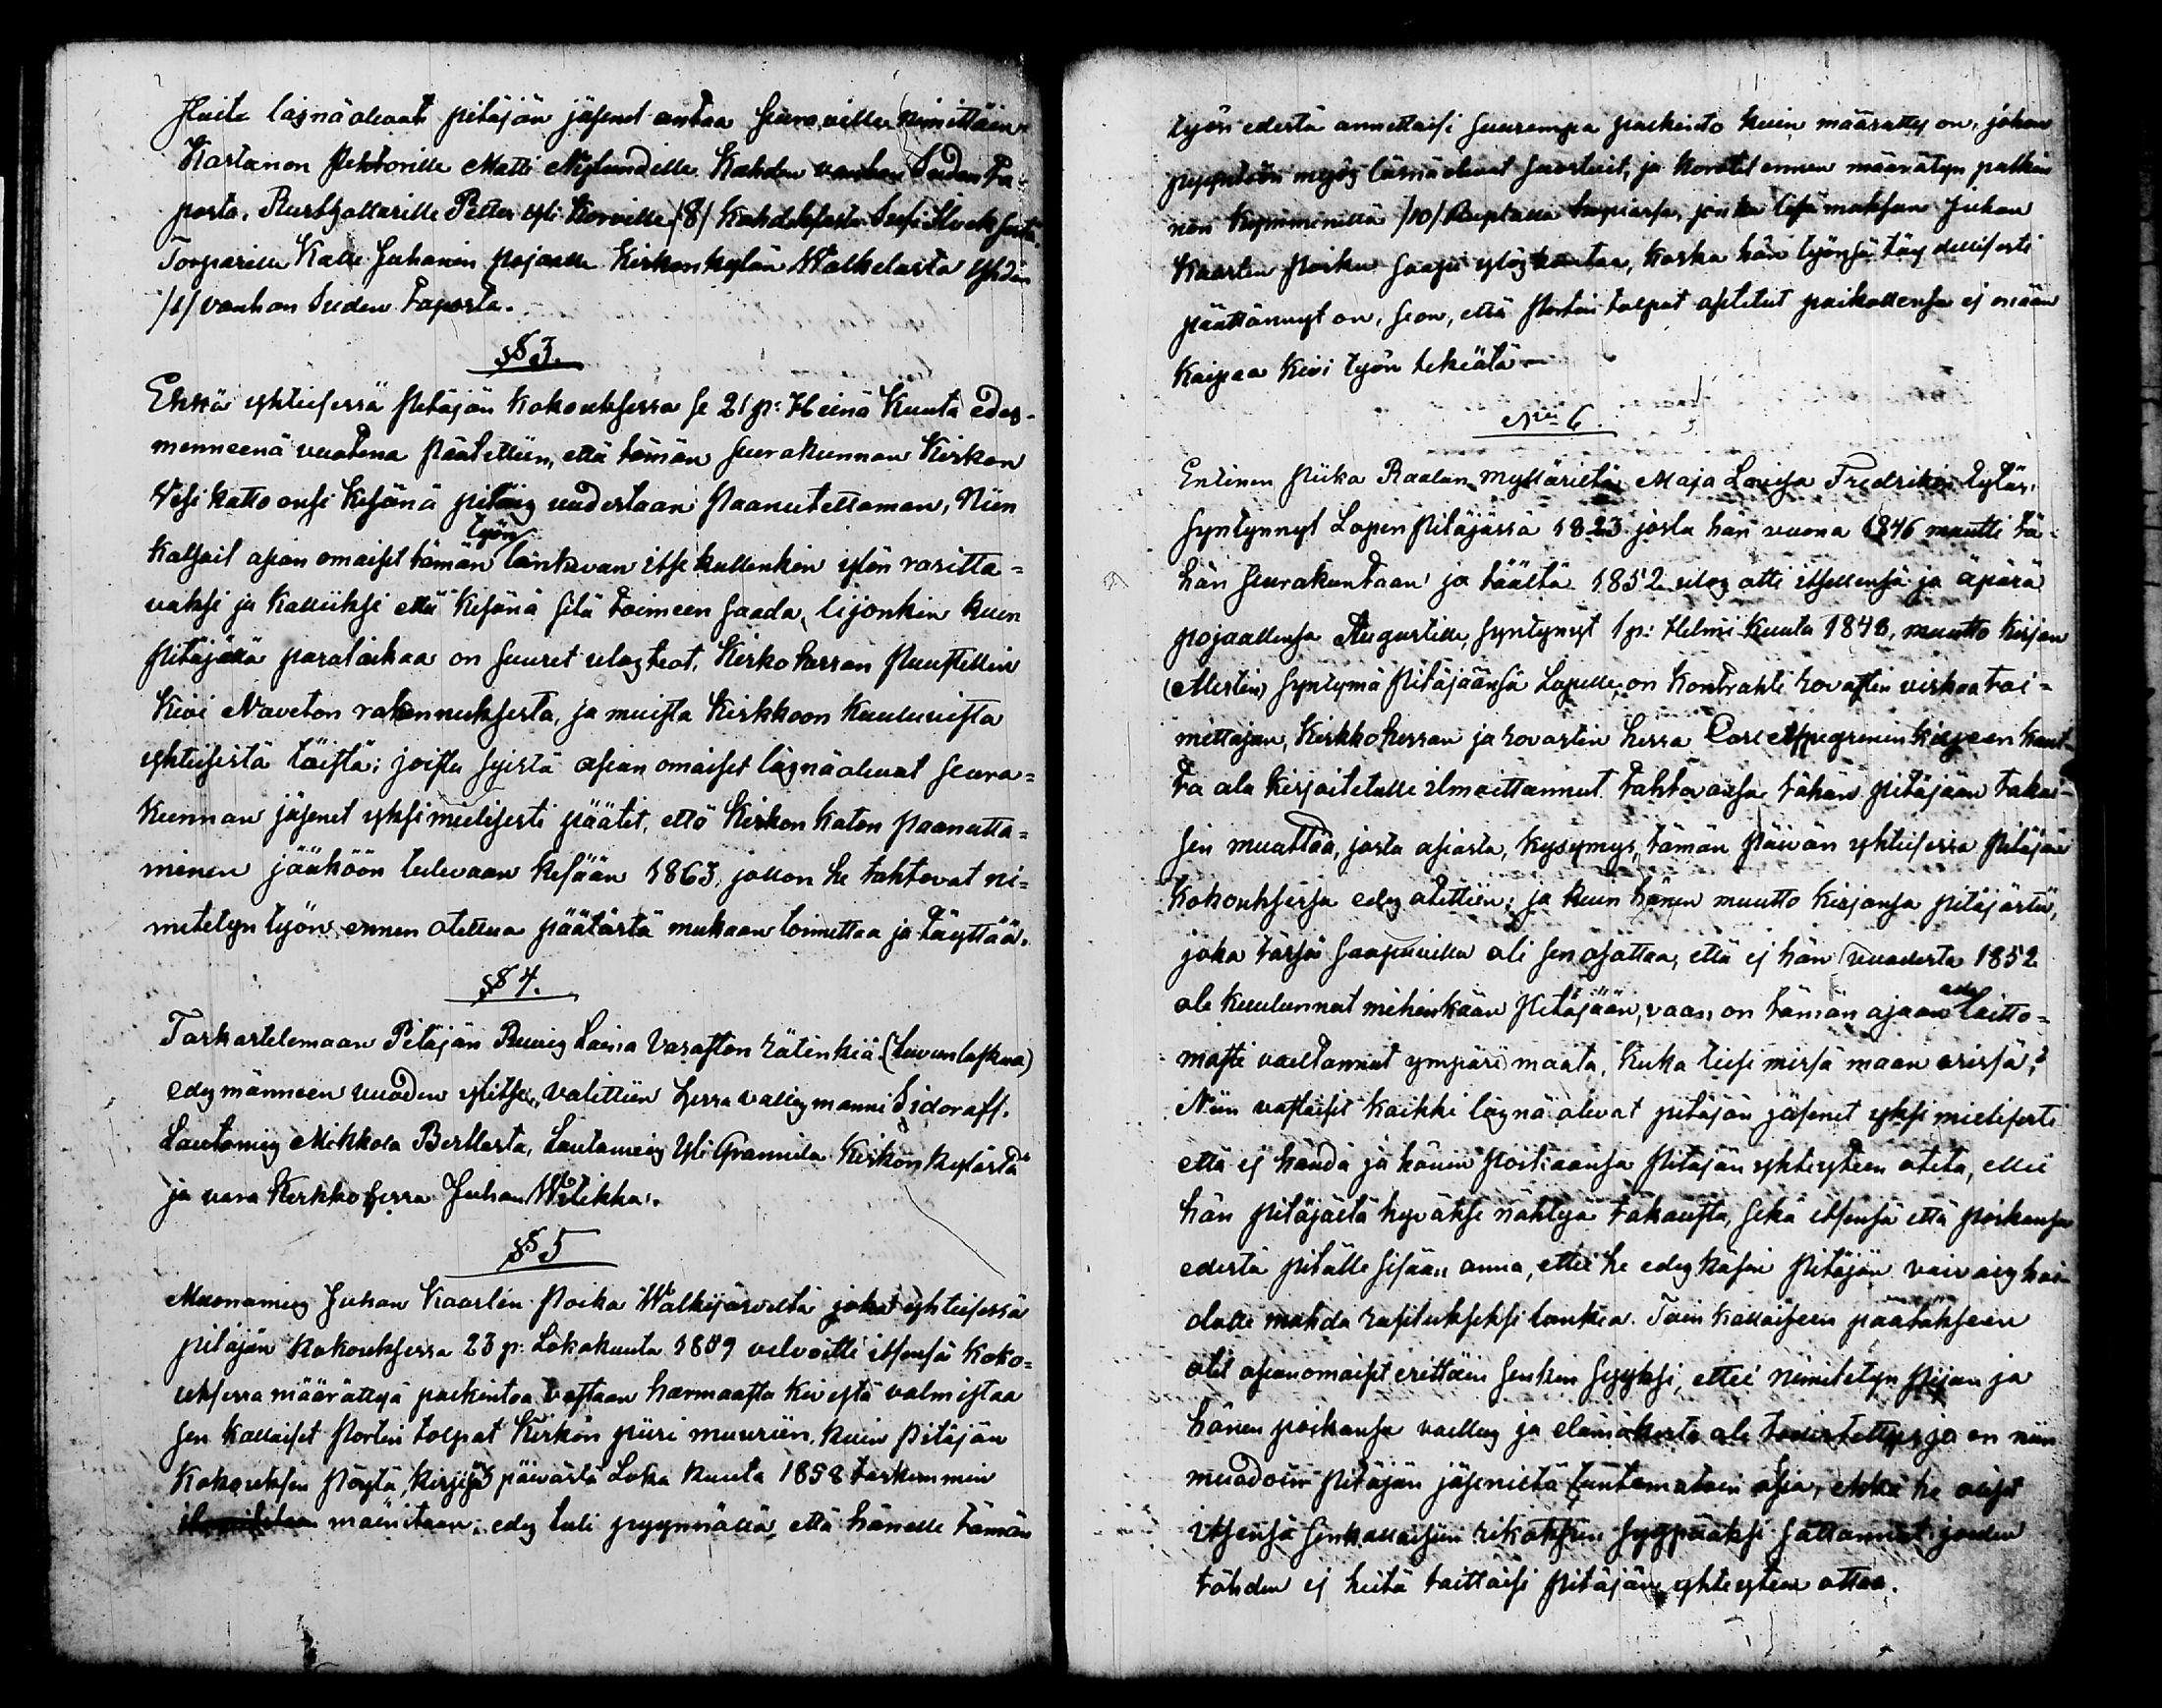 läsnäolevat pitäjän jäsenet antaa seuraville nimittäin
Kartanon Rehtorille Matti Nylundille Kahden vanhan Suden ta-
posta, Rusthollarille Petter Yli Korville /8/ Kahdeksasta
Torparille Kalle Juhanin pojalle Kirkonkylän Walkelasta yhden
/1/ vanhan Suden taposta.
§ 3.
Ehkä yhteisessä Pitäjän Kokouksessa se 21 p: Heinä Kuuta edes-
menneenä vuotena päätettiin, että tämän seurakunnan Kirkon
Vesi katto ensi kesänä pitäis uudestaan Paanutettaman, Niin
työn
katsoit asian omaiset tämän itse kullenkin ylön rasitta-
vaksi ja kalliiksi että kesänä sitä toimeen saada, kuin
Pitäjällä parataikaa on suuret ulosteot, Kirkoherran Puustellin
Kivi Naveton rakennuksesta, ja muista Kirkkoon kuuluvista
yhteisistä töistä; joista syistä asian omaiset läsnäolevat seura-
kunnan jäsenet yksimielisesti päätit, että Kirkon katon paanutta-
minen jääköön tulevaan kesään 1863, jollon he tahtovat ni-
mitetyn työn ennen otettua päätöstä mukaan toimittaa ja täyttää.
§ 4.
Tarkastelemaan Pitäjän Ruuis Laina Varaston rätinkiä (luvunlaskua)
edesmänneen vuoden ylitse, valittiin herra vallesmanni Sidoroff.
Lautamies Mikkola Berttasta, Lautamies Yli Grannila Kirkon kylästä
ja vara Kirkkoherra Juhan Witikka.
§ 5
Muonamies Juhan Kaarlen Poika Walkijärveltä joka yhteisessä
pitäjän Kokouksessa 23 p: Lokakuuta 1859 velvoitti itsensä koko-
uksessa määrättyä palkintoa vastaan harmaasta kivestä valmistaa
sen kallaiset Portin tolpat Kirkon piiri muuriin, kuin Pitäjän
Kokouksen Pöytä kirjasa päivästä Loka kuuta 1858 tarkemmin
mainitaan; edes tuli pyynnällä, että hänelle tämän
työn edestä annettaisi suurempa palkinto kuin määrätty on, johon
pyyntöön myös läsnäolevat suostuit, ja korotit ennen määrätyn palkin
non Kymmenellä /10/ Ruplalla hopiassa, jonka lisä maksun Juhan
Kaarlen Poika saapi ylöskantaa, koska hän työnsä täydellisesti
päättännyt on, se on, että Portin tolpat asetetut paikallensa ej enään
kaipaa kivi työn tekiätä —
No 6.
Entinen Piika Raalan Myllärieltä Maja Lovisa Fredrikin tytär,
syntynnyt Lopen Pitäjässä 1823 josta hän vuona 1846 muutti tä-
hän seurakuntaan ja täältä 1852 ulos otti itsellensä ja äpärä
pojaallensa Augustille, syntynyt 1 p: Helmi Kuuta 1848, muutto kirjan
syntymä Pitäjäänsä Lopelle, on Kontrahti rovastin virkaa toi-
mittajan, Kirkkoherran ja rovastin herra Carl kirjaan kaut-
ta ala kirjoitetulle ilmoittannut tahtovansa tähän pitäjään takai-
sin muuttaa, josta asiasta, kysymys, tämän päivän yhteisessä pitäjän
Kokouksessa edes otettiin; ja kuin hänen muutto kirjansa pitäjästä,
joka tässä saapuvilla oli sen osottaa, että ej hän vuodesta 1852
ole kuulunnut mihinkään Pitäjään, vaan on tämän ajaan laitto-
masti vaeltannut ympäri maata, kuka tiesi missä maan ?
Niin vastaisit kaikki läsnä olevat pitäjän jäsenet yksi mielisesti
että ej händä ja hänen Poikaansa Pitäjän yhteyteen oteta, ellei
hän pitäjältä hyväksi nähtyä takausta, sekä itsensä että poikansa
edestä pitälle sisään anna, ettei he edeskäsin Pitäjän vaivaishoi-
dolle mahda rasitukseksi lankea. Tain kallaiseen päätökseen
olit asianomaiset erittäin senkin syyksi, ettei nimitetyn Piijan ja
hänen poikansa vaellus ja elämäkerta ole todistettu, ja on niin
muodoin Pitäjän jäsenieltä tuntematoin asia, ehkä he oisit
itsensä senkallaisiin rikoksiin syypääksi sattannut joiden
tähden ej heitä taittaisi Pitäjän yhteyteen ottaa.